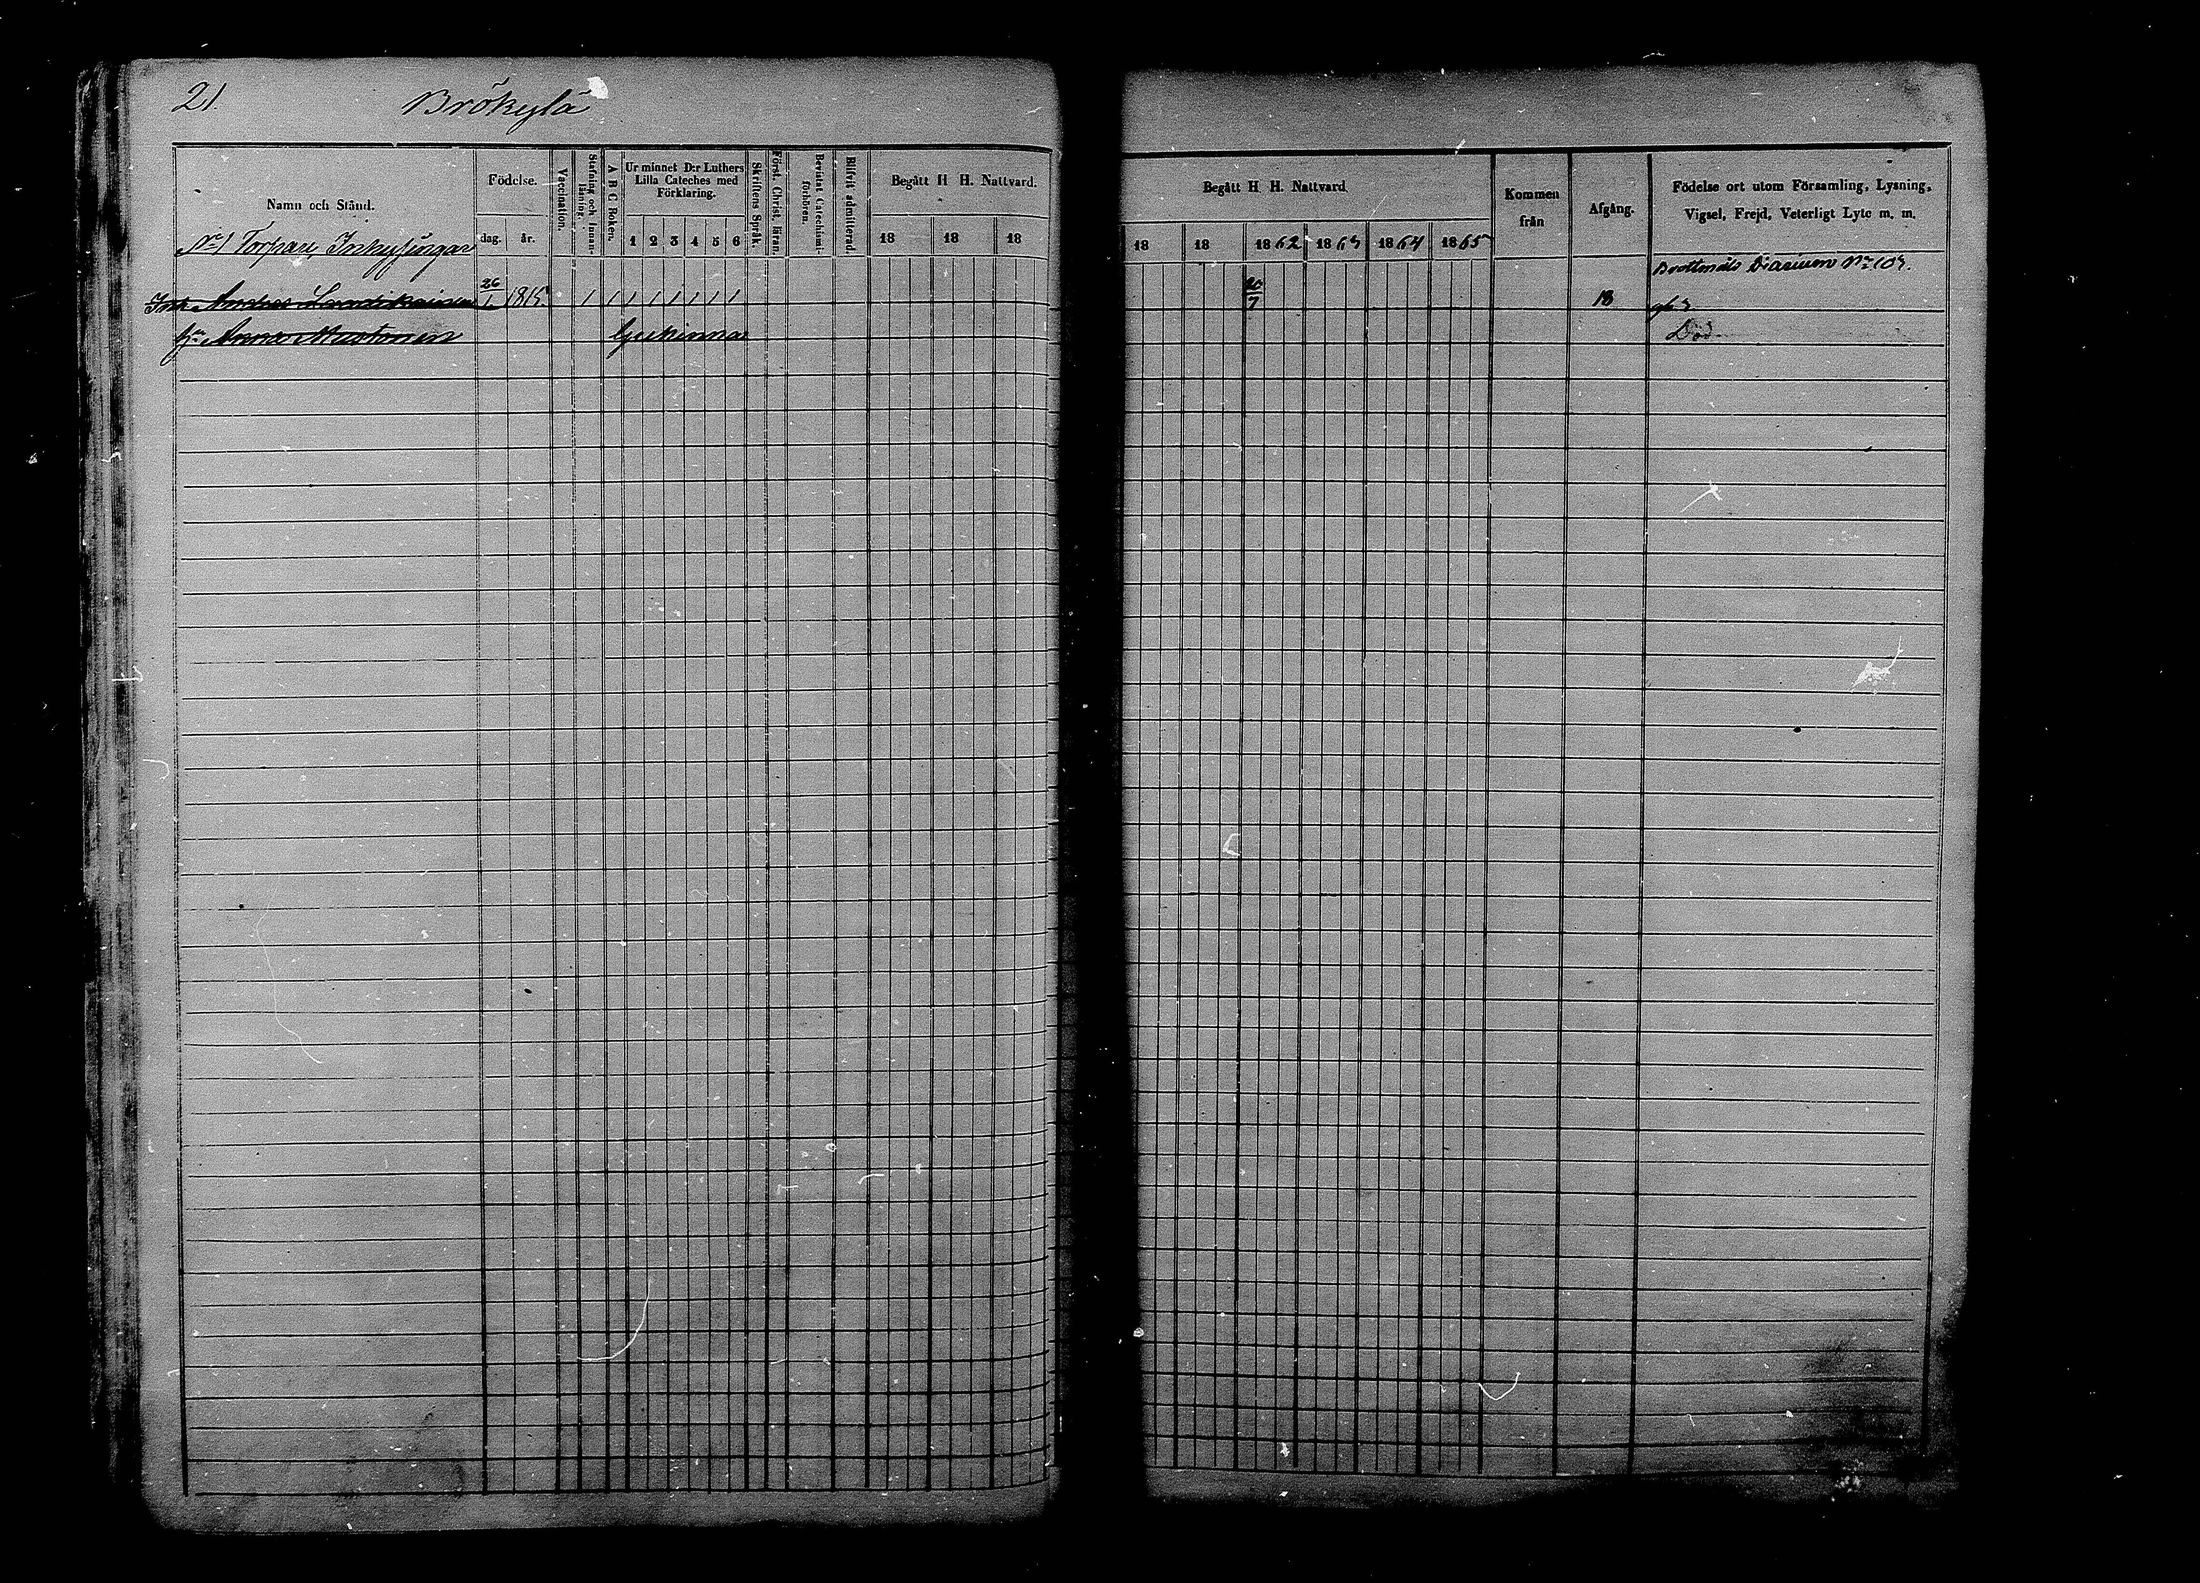 21.
Brökylä
Namn och Stånd.
Födelse.
dag.
år.
Vaccination.
Stafning och Innanläsning.
A B C Boken.
Ur minnet D:r Luthers Lilla Cateches med Förklaring.
1 2 3 4 5 6
Skriftens Språk.
Först. Christ. läran.
Bevistat Catechismiförhören.
Blifvit admitterad.
Begått H H. Nattvard.
18 18 18
Begått H H. Nattvard.
18 18 1862 1863 1864 1865
Kommen från
Afgång.
Födelse ort utom Församling, Lysning, Vigsel, Frejd, Veterligt Lyte m. m.
No 1 Torpare, Inhysingar
Brottmåls Diarium No 103.
Inh. Andres 26/1 1815 1 1 1 1 1 1 1 1 18
hu Anna Mustonen Död